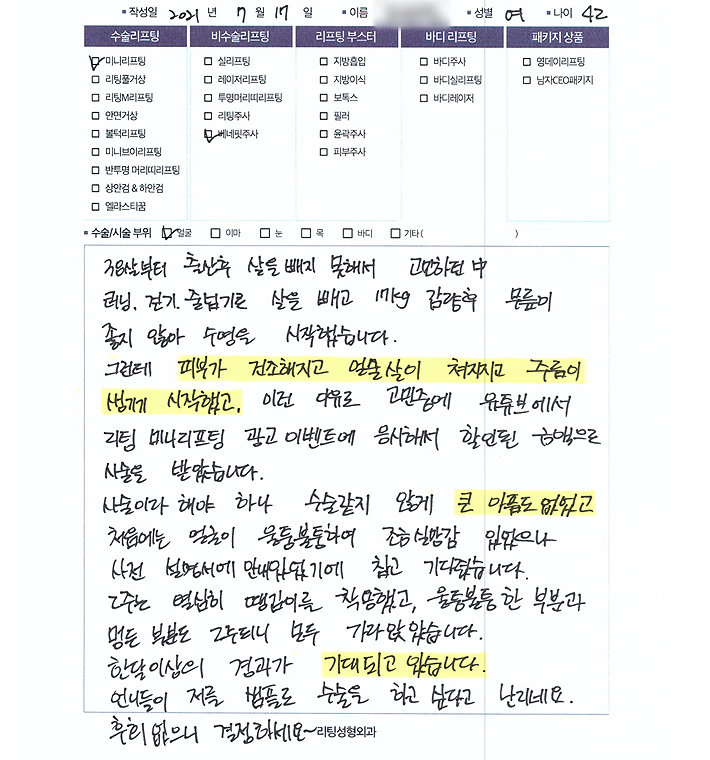 • 작성일 2021 년 7 월 17 일 • 이름 • 성별 여 • 나이 42
수술리프팅 비수술리프팅 리프팅 부스터 바디 리프팅 패키지 상품
미니리프팅 실리프팅 지방흡입 바디주사 영데이리프팅
리팅풀거상 레이저리프팅 지방이식 바디실리프팅 남자CEO패키지
리팅M리프팅 투명머리띠리프팅 보톡스 바디레이저
안면거상 리팅주사 필러
볼턱리프팅 베네핏주사 윤곽주사
미니브이리프팅 피부주사
반투명 머리띠리프팅
상안검 & 하안검
엘라스티꿈
• 수술/시술 부위 얼굴 이마 눈 목 바디 기타( )
38살부터 출산후 살을 빼지 못해서 고민하던 中
러닝, 걷기. 줄넘기로 살을 빼고 17kg 감량후 무릎이
좋지 않아 수영을 시작했습니다.
그런데 피부가 건조해지고 얼굴살이 쳐지고 주름이
생기게 시작했고, 이런 이유로 고민중에 유튜브에서
리팅 미니리프팅 광고이벤트에 응시해서 할인된 금액으로
시술을 받았습니다.
시술이라 해야 하나 수술같지 않게 큰 아픔도 없었고
처음에는 얼굴이 울퉁불퉁하여 조금 실망감 있었으나
사전 설명서에 안내있었기에 참고 기다렸습니다.
2주는 열심히 땡김이를 착용했고, 울퉁불퉁한 부분과
멍든 부분도 2주되니 모두 가라앉았습니다.
한달이상의 경과가 기대되고 있습니다.
언니들이 저를 샘플로 수술을 하고 싶다고 난리네요.
후회없으니 결정하세요~리팅성형외과